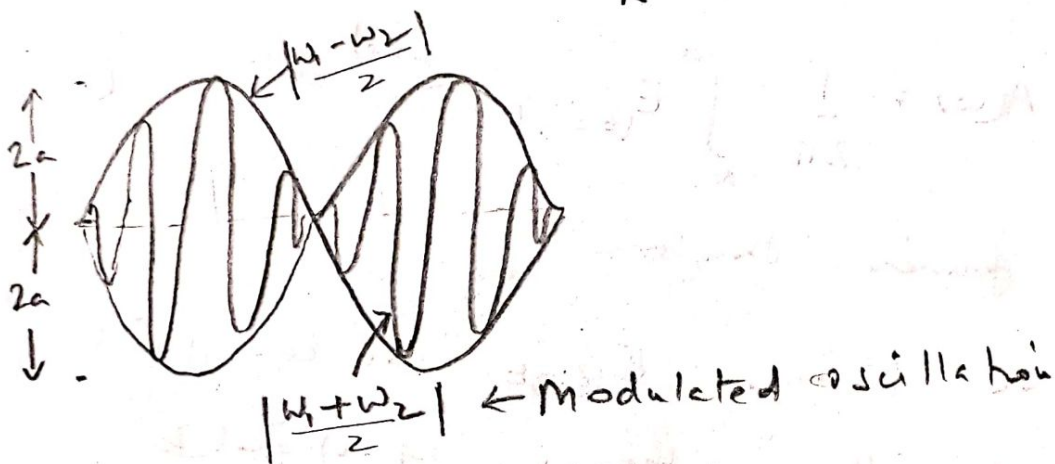 |ω₁-ω₂/2|
2a
2a
|ω₁+ω₂/2| ← Modulated oscillation